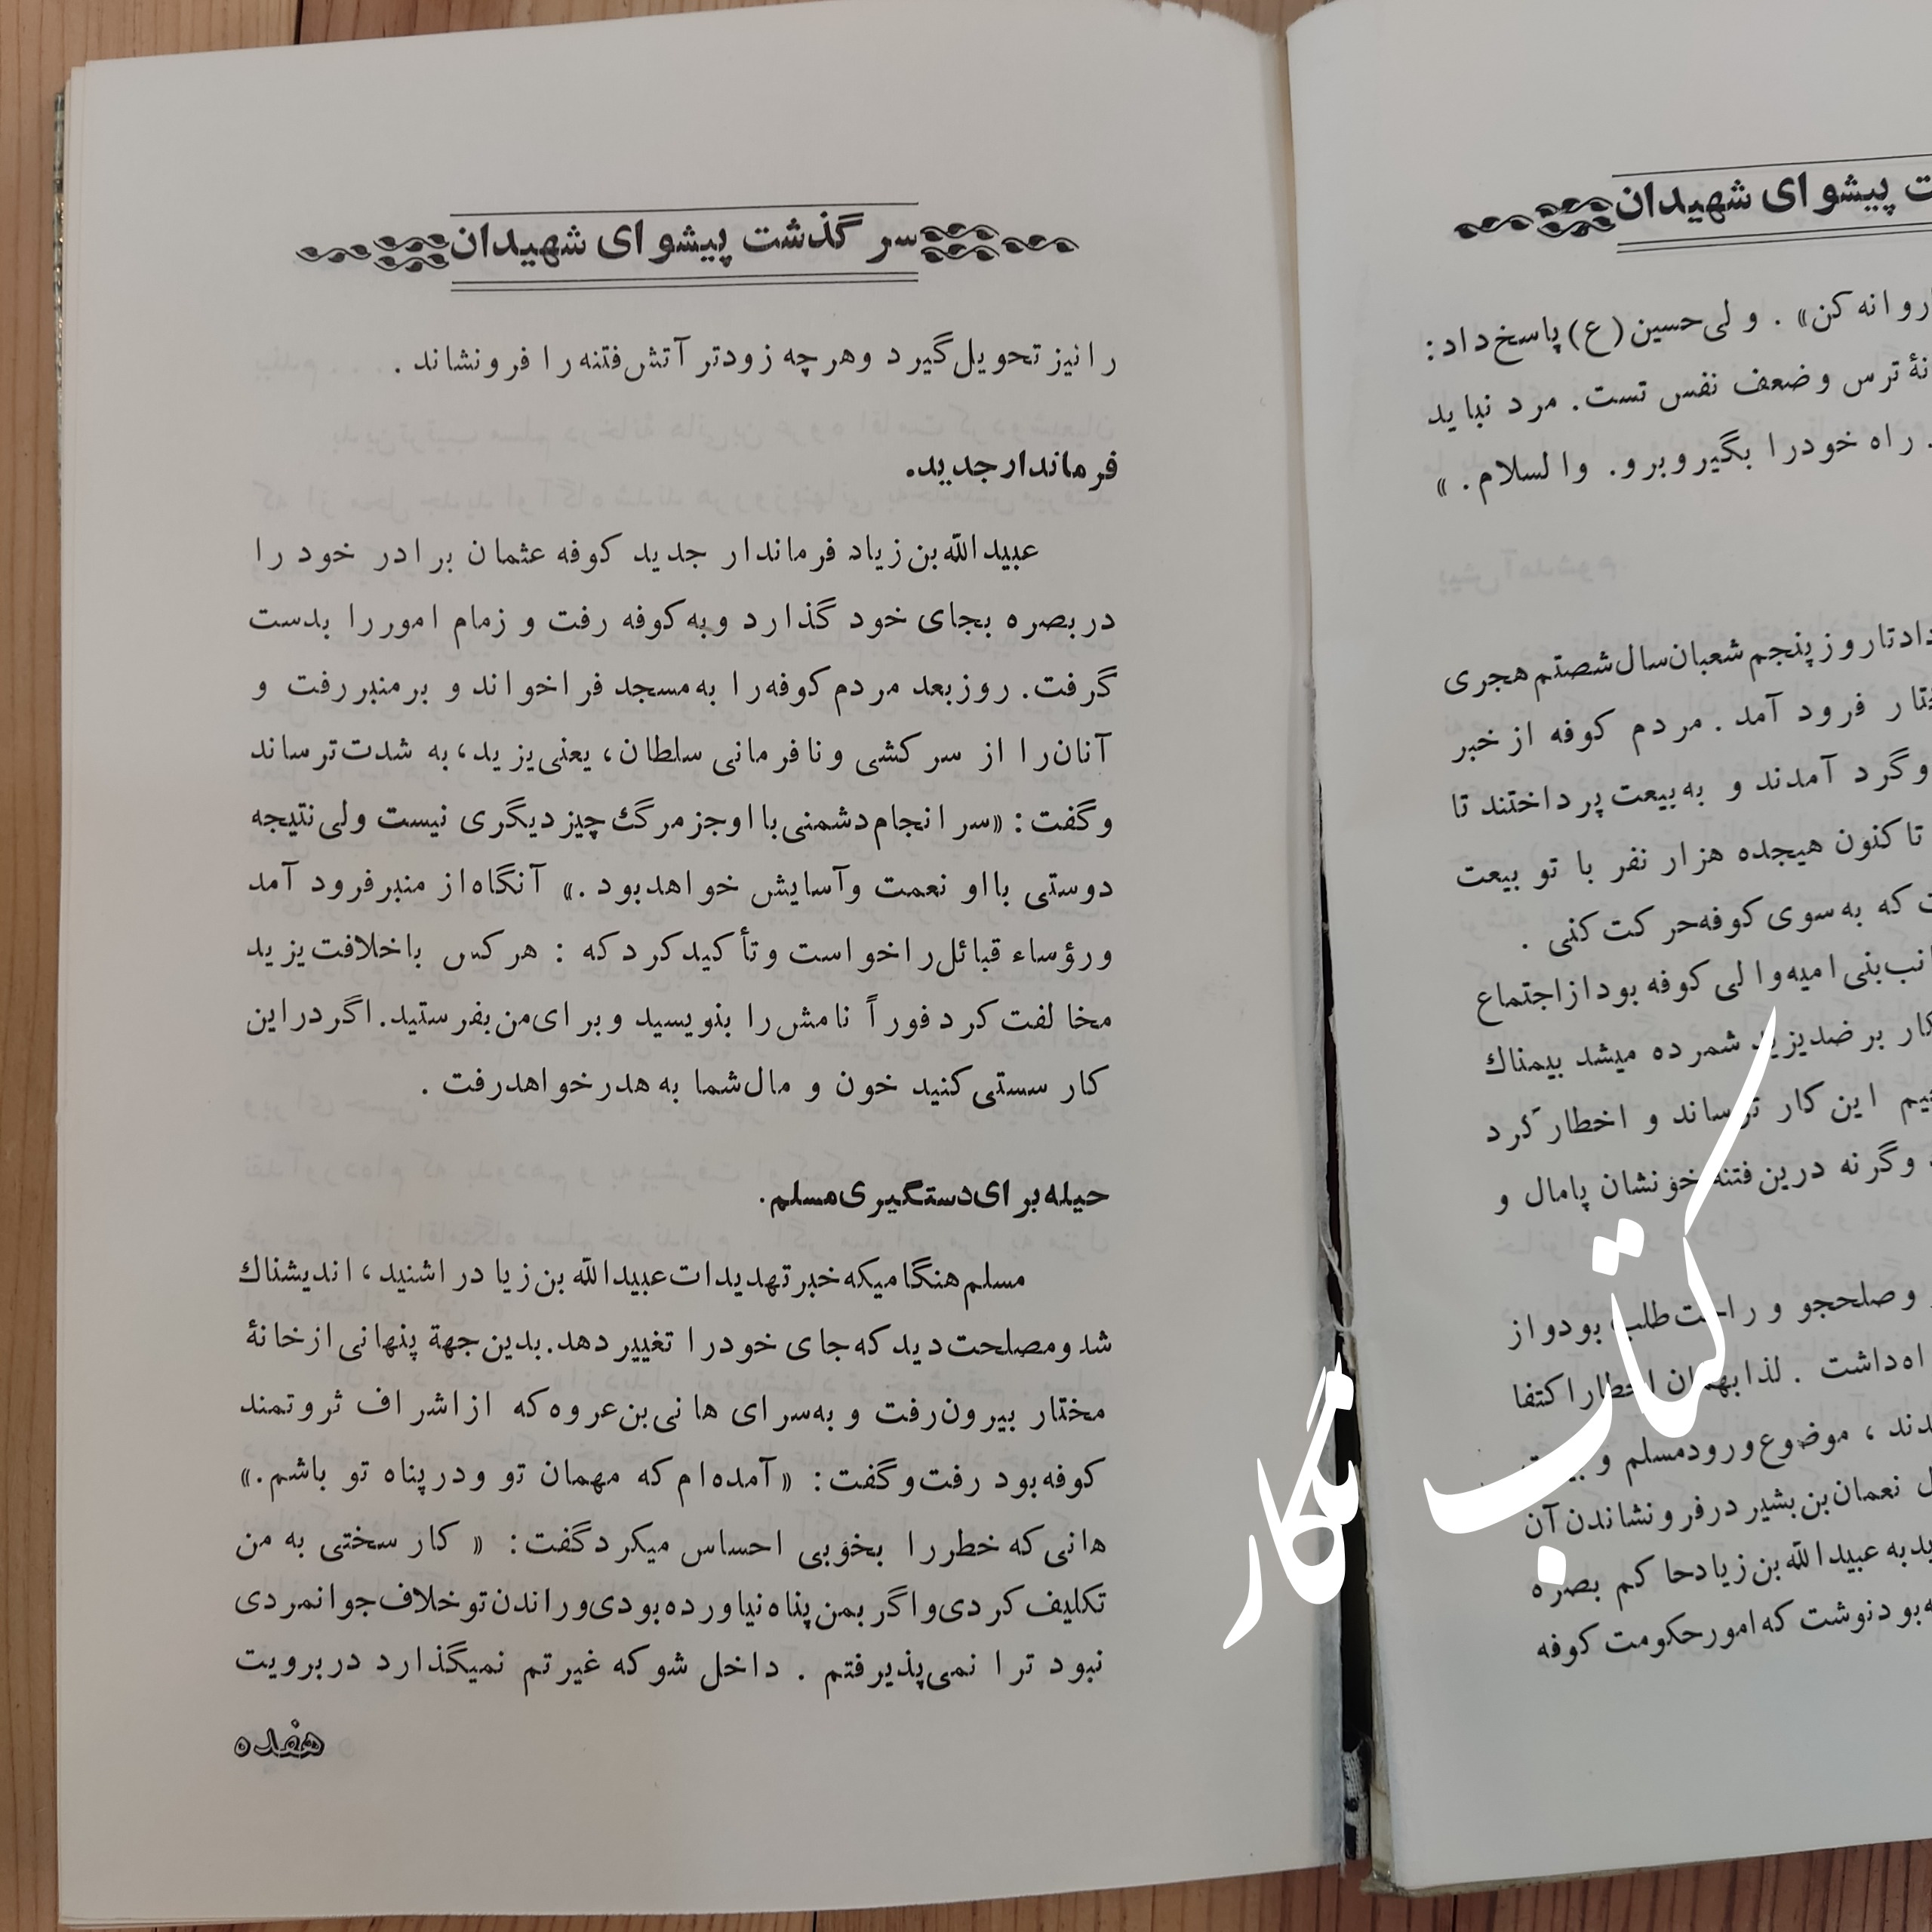 ت پیشوای شهیدان
روانه کن» . ولی حسین (ع) پاسخ داد :
نهٔ ترس وضعف نفس تست. مرد نباید
. راه خودرا بگیروبرو. والسلام. »
داد تا روز پنجم شعبان سال شصتم هجری
فرود آمد . مردم کوفه از خبر
وگرد آمدند و به بیعت پرداختند تا
تاکنون هیجده هزار نفر با تو بیعت
که به سوی کوفه حرکت کنی .
بنی امیه والی کوفه بود از اجتماع
کار بر ضد یزید شمرده میشد بیمناك
این کار ترساند و اخطار کرد
وگرنه درین فتنه خونشان پامال و
وصلحجو و راحت طلب بود و از
داشت . لذا بهمان اخطار اکتفا
دند ، موضوع ورود مسلم و
نعمان بن بشیر در فرونشاندن آن
به عبیدالله بن زیاد حاکم بصره
بود نوشت که امور حکومت کوفه
سرگذشت پیشوای شهیدان
را نیز تحویل گیرد وهرچه زودتر آتش فتنه را فرونشاند .
فرماندار جدید.
عبیدالله بن زیاد فرماندار جدید کوفه عثمان برادر خود را
در بصره بجای خود گذارد و به کوفه رفت و زمام امور را بدست
گرفت. روز بعد مردم کوفه را به مسجد فراخواند و بر منبر رفت و
آنان را از سرکشی و نافرمانی سلطان، یعنی یزید، به شدت ترساند
وگفت : «سرانجام دشمنی با او جز مرگ چیز دیگری نیست ولی نتیجه
دوستی با او نعمت وآسایش خواهد بود .» آنگاه از منبر فرود آمد
ورؤساء قبائل را خواست و تأکید کرد که : هرکس با خلافت یزید
مخالفت کرد فوراً نامش را بنویسید و برای من بفرستید. اگر در این
کار سستی کنید خون و مال شما به هدر خواهد رفت .
حیله برای دستگیری مسلم.
مسلم هنگامیکه خبر تهدیدات عبیدالله بن زیاد را شنید، اندیشناك
شد و مصلحت دید که جای خود را تغییر دهد. بدین جهة پنهانی از خانهٔ
مختار بیرون رفت و به سرای هانی بن عروه که از اشراف ثروتمند
کوفه بود رفت وگفت : «آمده ام که مهمان تو و در پناه تو باشم.»
هانی که خطر را بخوبی احساس میکرد گفت : « کار سختی به من
تکلیف کردی و اگر بمن پناه نیاورده بودی و راندن تو خلاف جوانمردی
نبود ترا نمی پذیرفتم . داخل شو که غیرتم نمیگذارد در برویت
هفده
کتاب
نگار